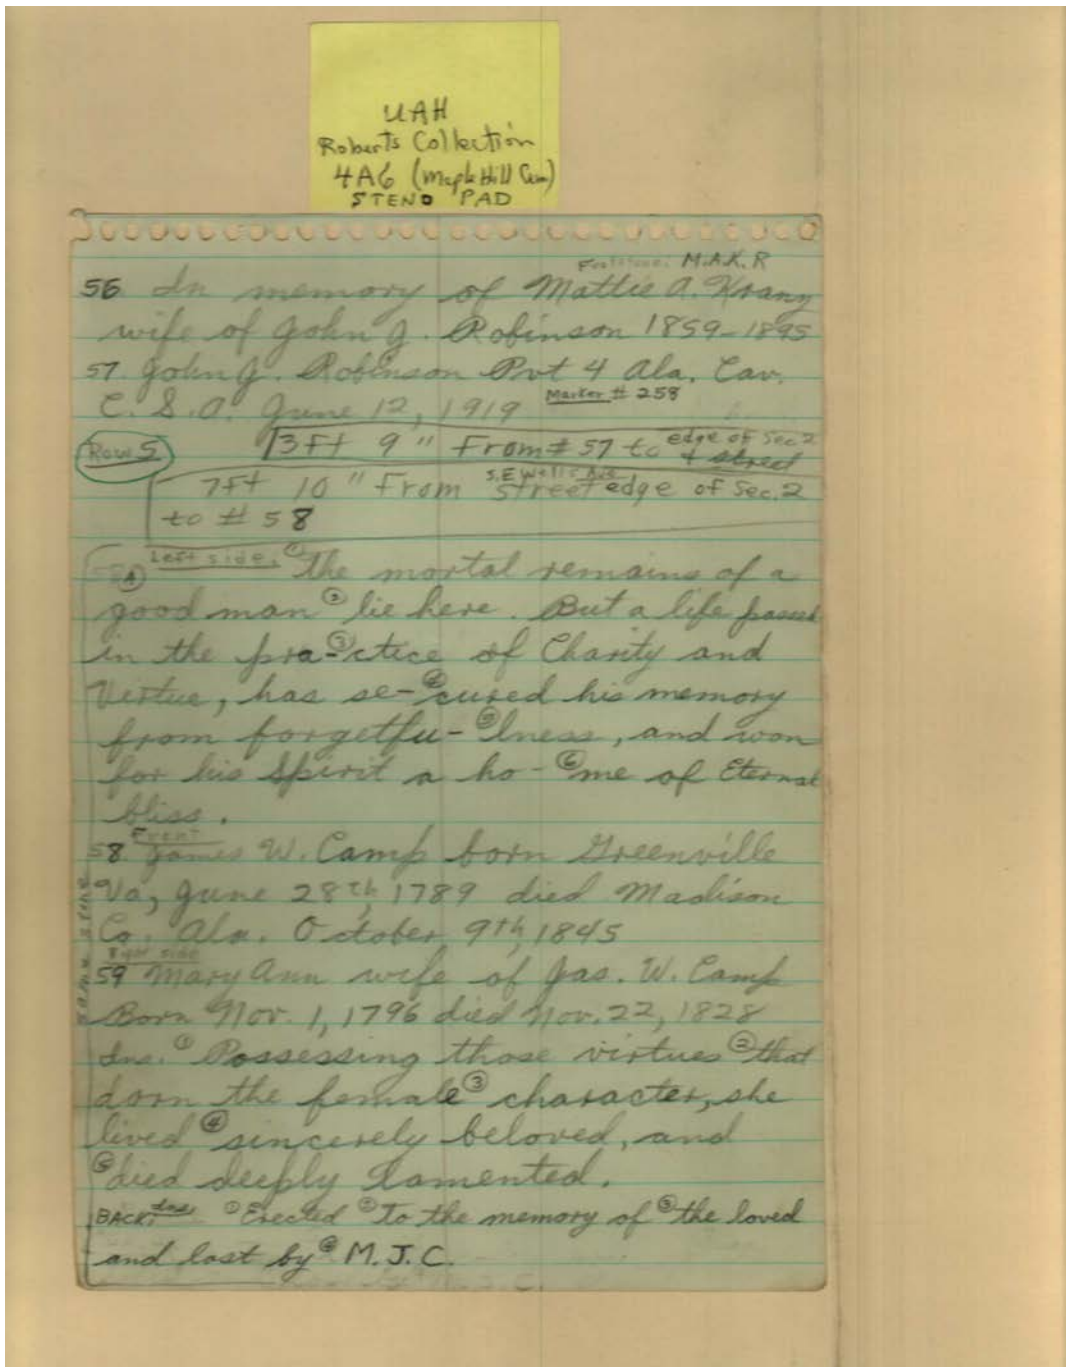 UAH
Roberts Collection
4A6 (Maple Hill Cem)
STENO PAD
Footstone: M.A.K.R
56 In memory of Mattie A. Krany
wife of John J. Robinson 1859-1895
57. John J. Robinson Pvt 4 Ala. Cav.
C.S.A. June 12, 1919 Marker # 258
Row 5 13 Ft 9" From # 57 to edge of Sec 2
+ street
7Ft 10" From S.E Wells Ave street edge of Sec. 2
to # 58
58 A Left side: ① The mortal remains of a
good man ② lie here. But a life passed
in the pra-③ctice of Charity and
Virtue, has se-④cured his memory
from forgetfu-⑤lness, and won
for his Spirit a ho-⑥me of Eternal
bliss.
Front
58. James W. Camp born Greenville
Va, June 28th, 1789 died Madison
Co. Ala. October 9th, 1845
side
59 Mary Ann wife of Jas. W. Camp
Born Nov. 1, 1796 died Nov. 22, 1828
Ins. ① Possessing those virtues ② that
dorn the female ③ character, she
lived ④ sincerely beloved, and
⑤ died deeply lamented.
BACK: Ins ① Erected ② To the memory of ③ the loved
and lost by ④ M.J.C.